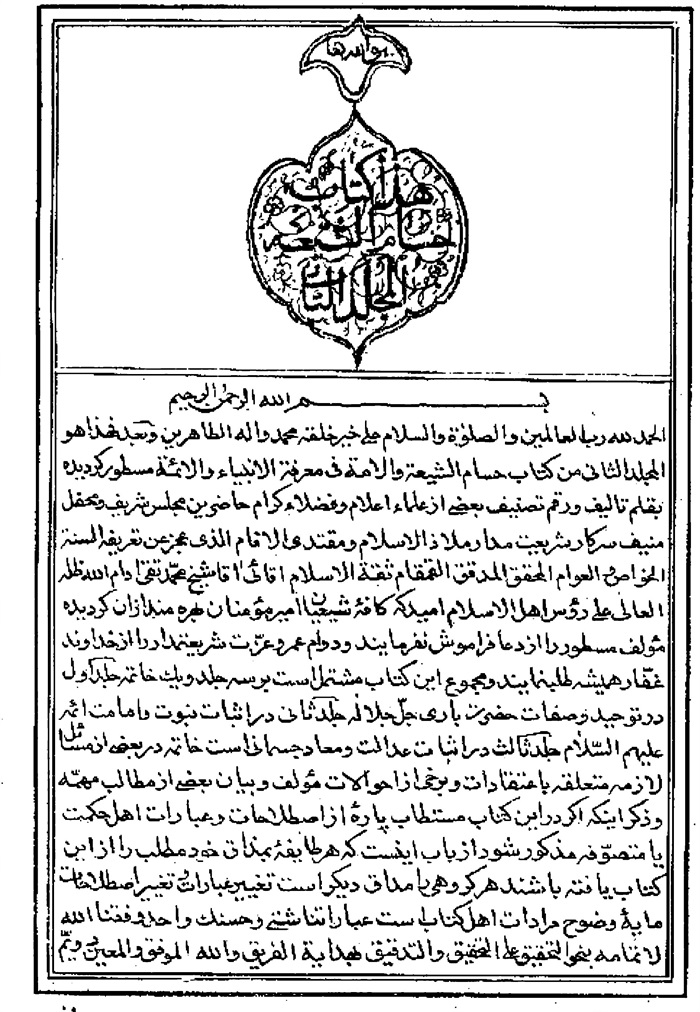 هو الله تعالى
هذا كتاب
حسام الشيعه
المجلد الثانى
بسم الله الرحمن الرحيم
الحمد لله رب العالمين و الصلوة و السلام على خير خلقه محمد و اله الطاهرين و بعد فهذا هو
المجلد الثانى من كتاب حسام الشيعة و الامة فى معرفة الانبياء و الائمة مسطور كرديده
بقلم تاليف و رقم تصنيف بعضى از علماء اعلام و فضلاء كرام حاضرين مجلس شريف و محفل
منيف سركار شريعت مدار ملاذ الاسلام و مقتدى الاقام الذى عجز عن تعريفه السنة
الخواص و العوام المحقق المدقق القمقام ثقة الاسلام اقائى اقا شيخ محمد تقى دام الله ظله
العالى على رؤس اهل الاسلام اميد كه كافهٔ شيعيان امير مؤمنان بهره مند ازان كرديده
مؤلف مسطور را از دعا فراموش نفرمايند و دوام عمر و عزت شريعتمدار را از خداوند
غفار هميشه طلب نمايند و مجموع اين كتاب مشتمل است بر سه جلد و يك خاتمه جلد اول
در توحيد و صفات حضرت بارى جل جلاله جلد ثانى در اثبات نبوت و امامت ائمه
عليهم السلام جلد ثالث در اثبات عدالت و معاد جسمانى است خاتمه در بعضى از مسائل
لازمه متعلقه باعتقادات و برخى از احوالات مؤلف و بيان بعضى از مطالب مهمه
و ذكر اينكه اكر در اين كتاب مستطاب پارهٔ از اصطلاحات و عبارات اهل حكمت
يا متصوفه مذكور شود از باب اينست كه هر طايفهٔ بمذاق خود مطلب را از اين
كتاب يافته باشند هر كروهى را مذاق ديكر است تغيير عبارات و تغيير اصطلاحات
مايهٔ وضوح مرادات اهل كتاب است عباراتنا شتى و حسنك واحد وفقنا الله
لاتمامه بنحو التحقيق على التحقيق و التدقيق بهداية الفريق و الله الموفق و المعين و تم